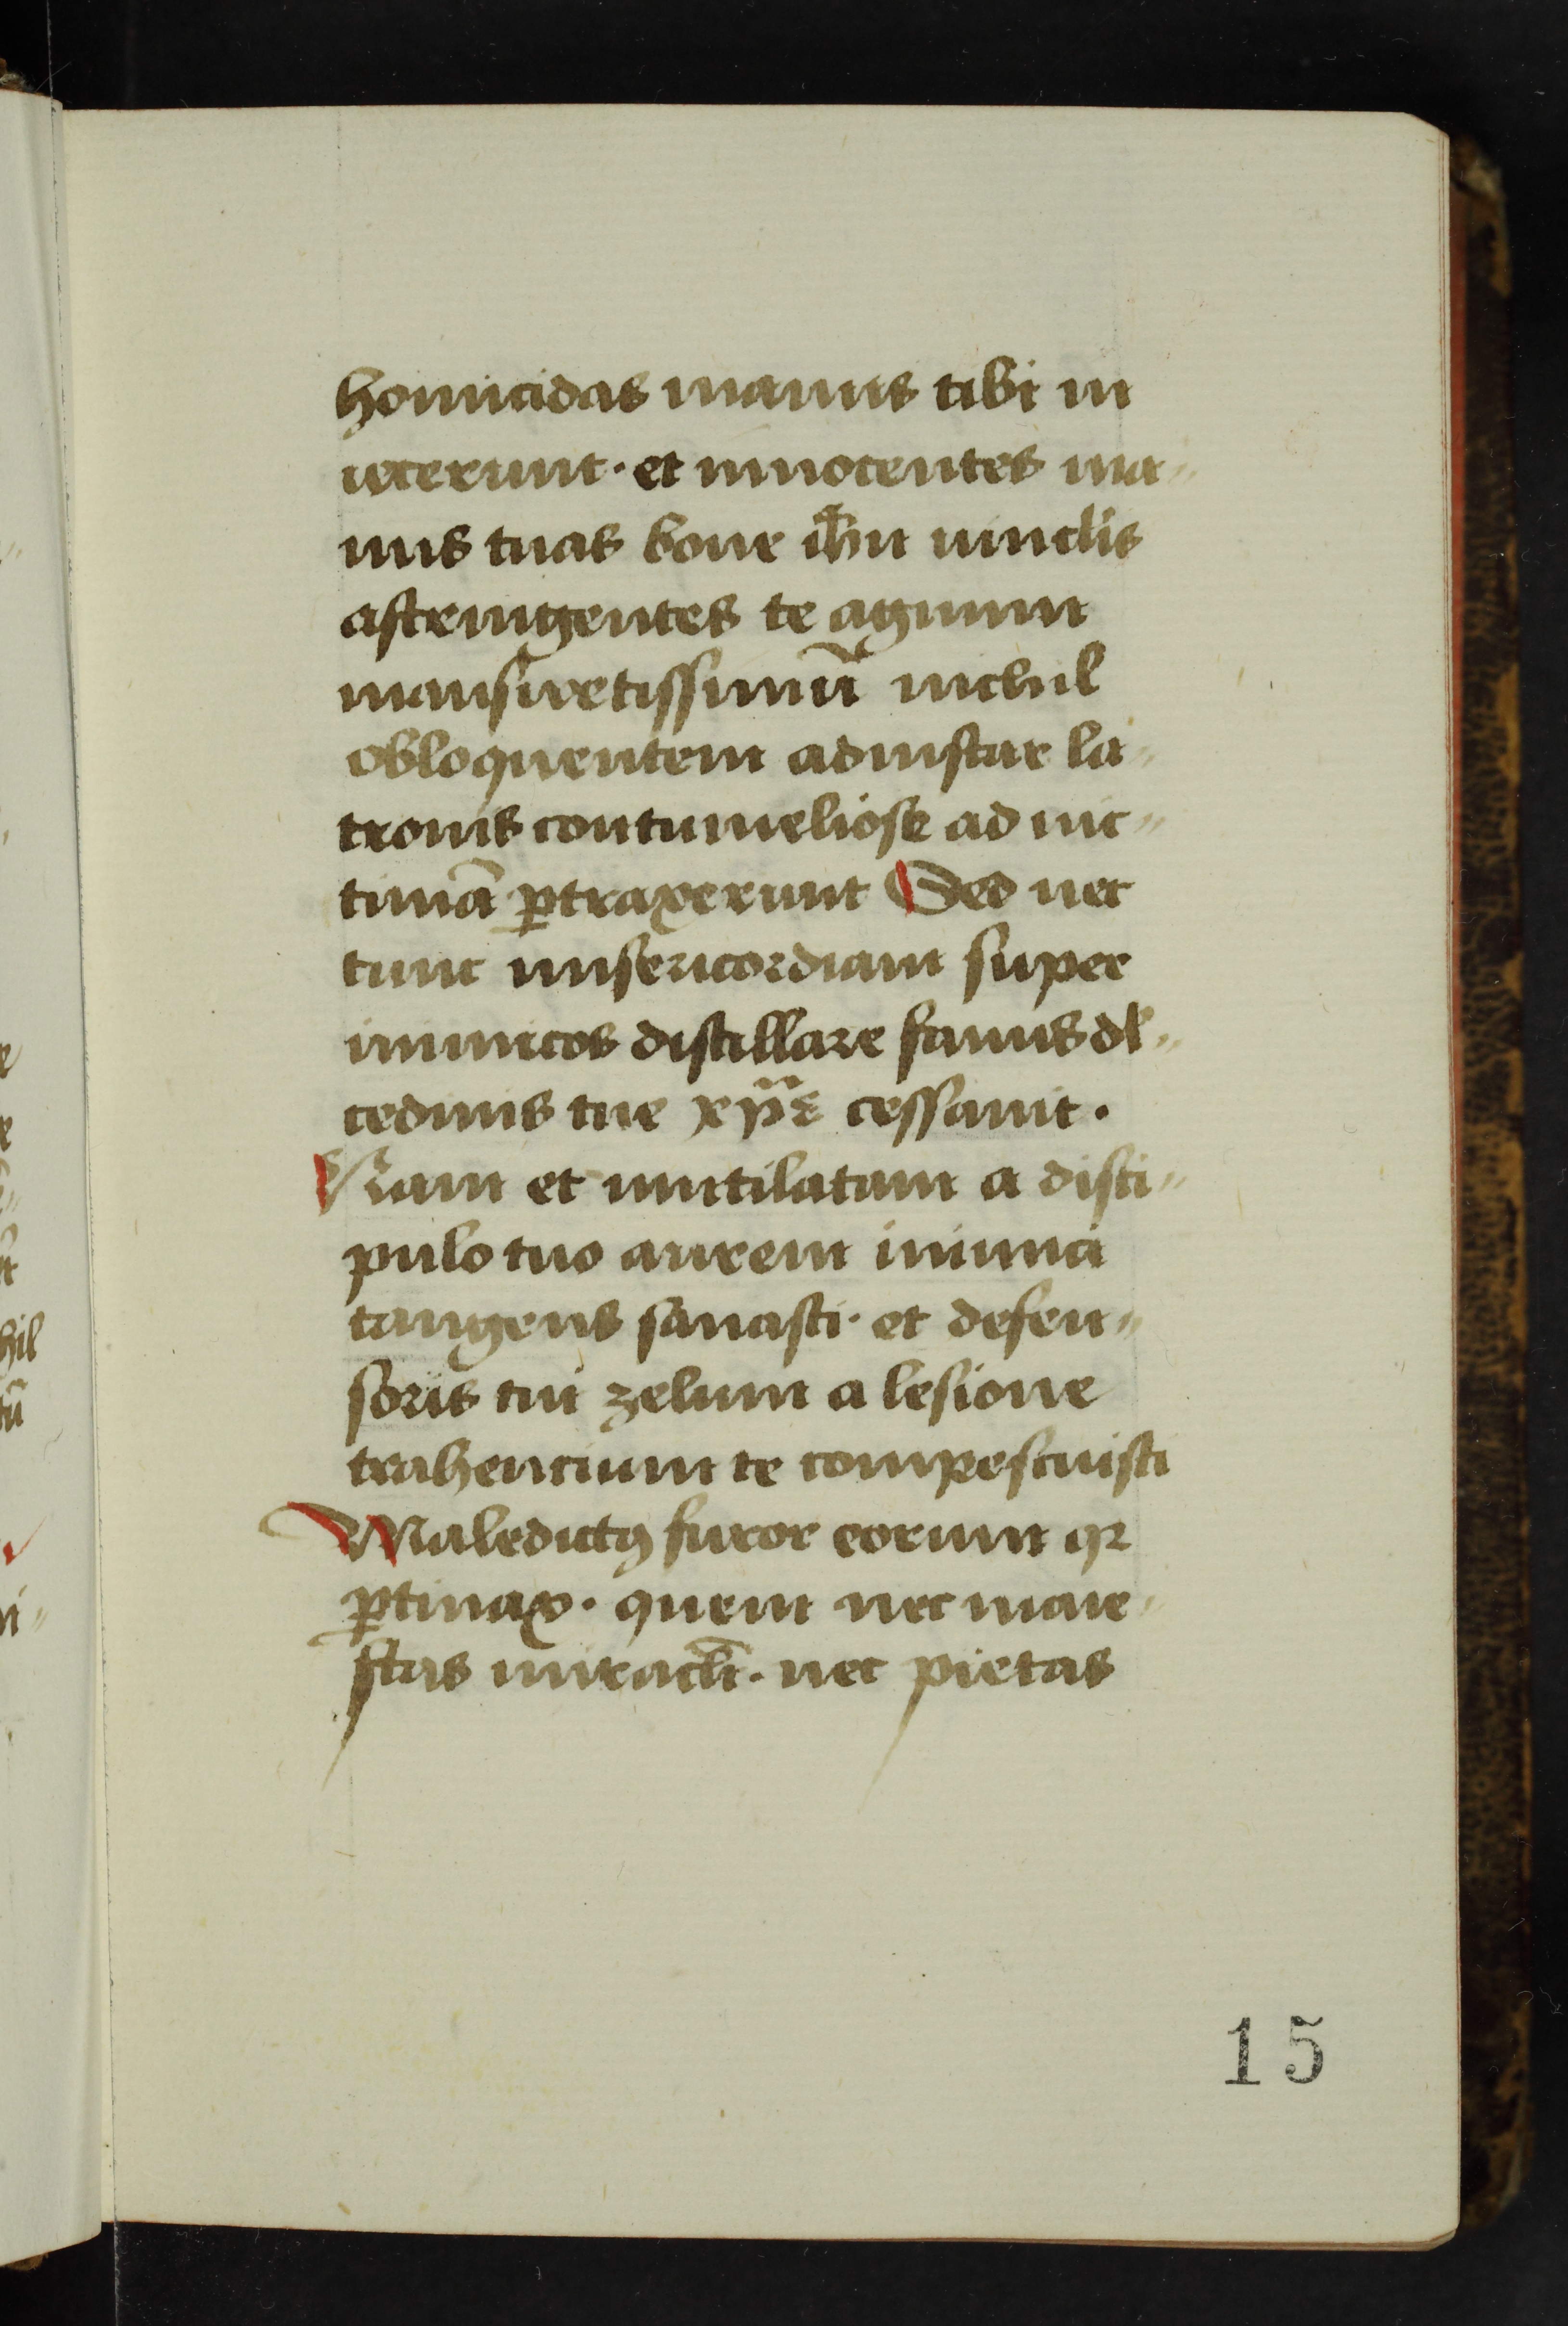 homicidas manus tibi in
iecerunt · et innocentes ma„
nus tuas bone ih̅u uinclis
astringentes te agnum
mansuetissimū nichil
obloquentem adinstar la„
tronis contumeliose ad uic„
timā ꝑtraxerunt Sed nec
tunc misericordiam super
inimicos distillare fauus dl„
cedinis tue xp̅e cessauit .
Nam et mutilatam a disci„
pulo tuo aurem inimici
tangens sanasti · et defen„
soris tui zelum a lesione
trahencium te compescuisti
Maledictꝯ furor eorum qꝛ
ꝑtinax · quem nec maie„
stas miracl̅i . nec pietas
15